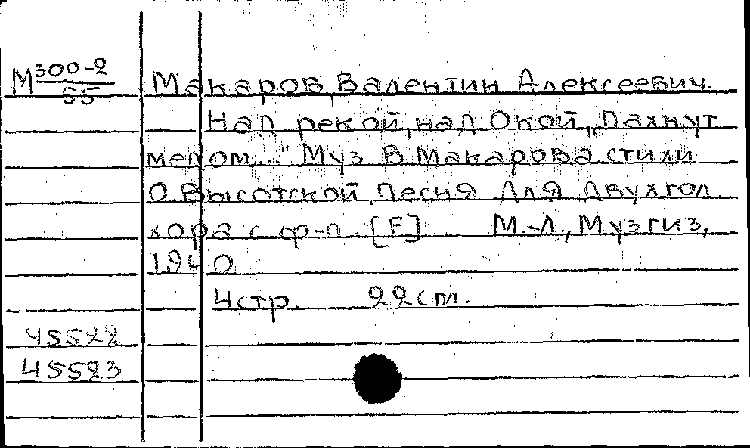 М 300-2
55
Макаров, Валентин Алексеевич.
Над рекой, над Окой, "Пахнут
медом..." Муз В. Макарова стихи
О. Высотской. Песня для двухгол
хора с ф-п. [F] М.-Л., Музгиз,
1940
4стр. 22см.
45522
45523